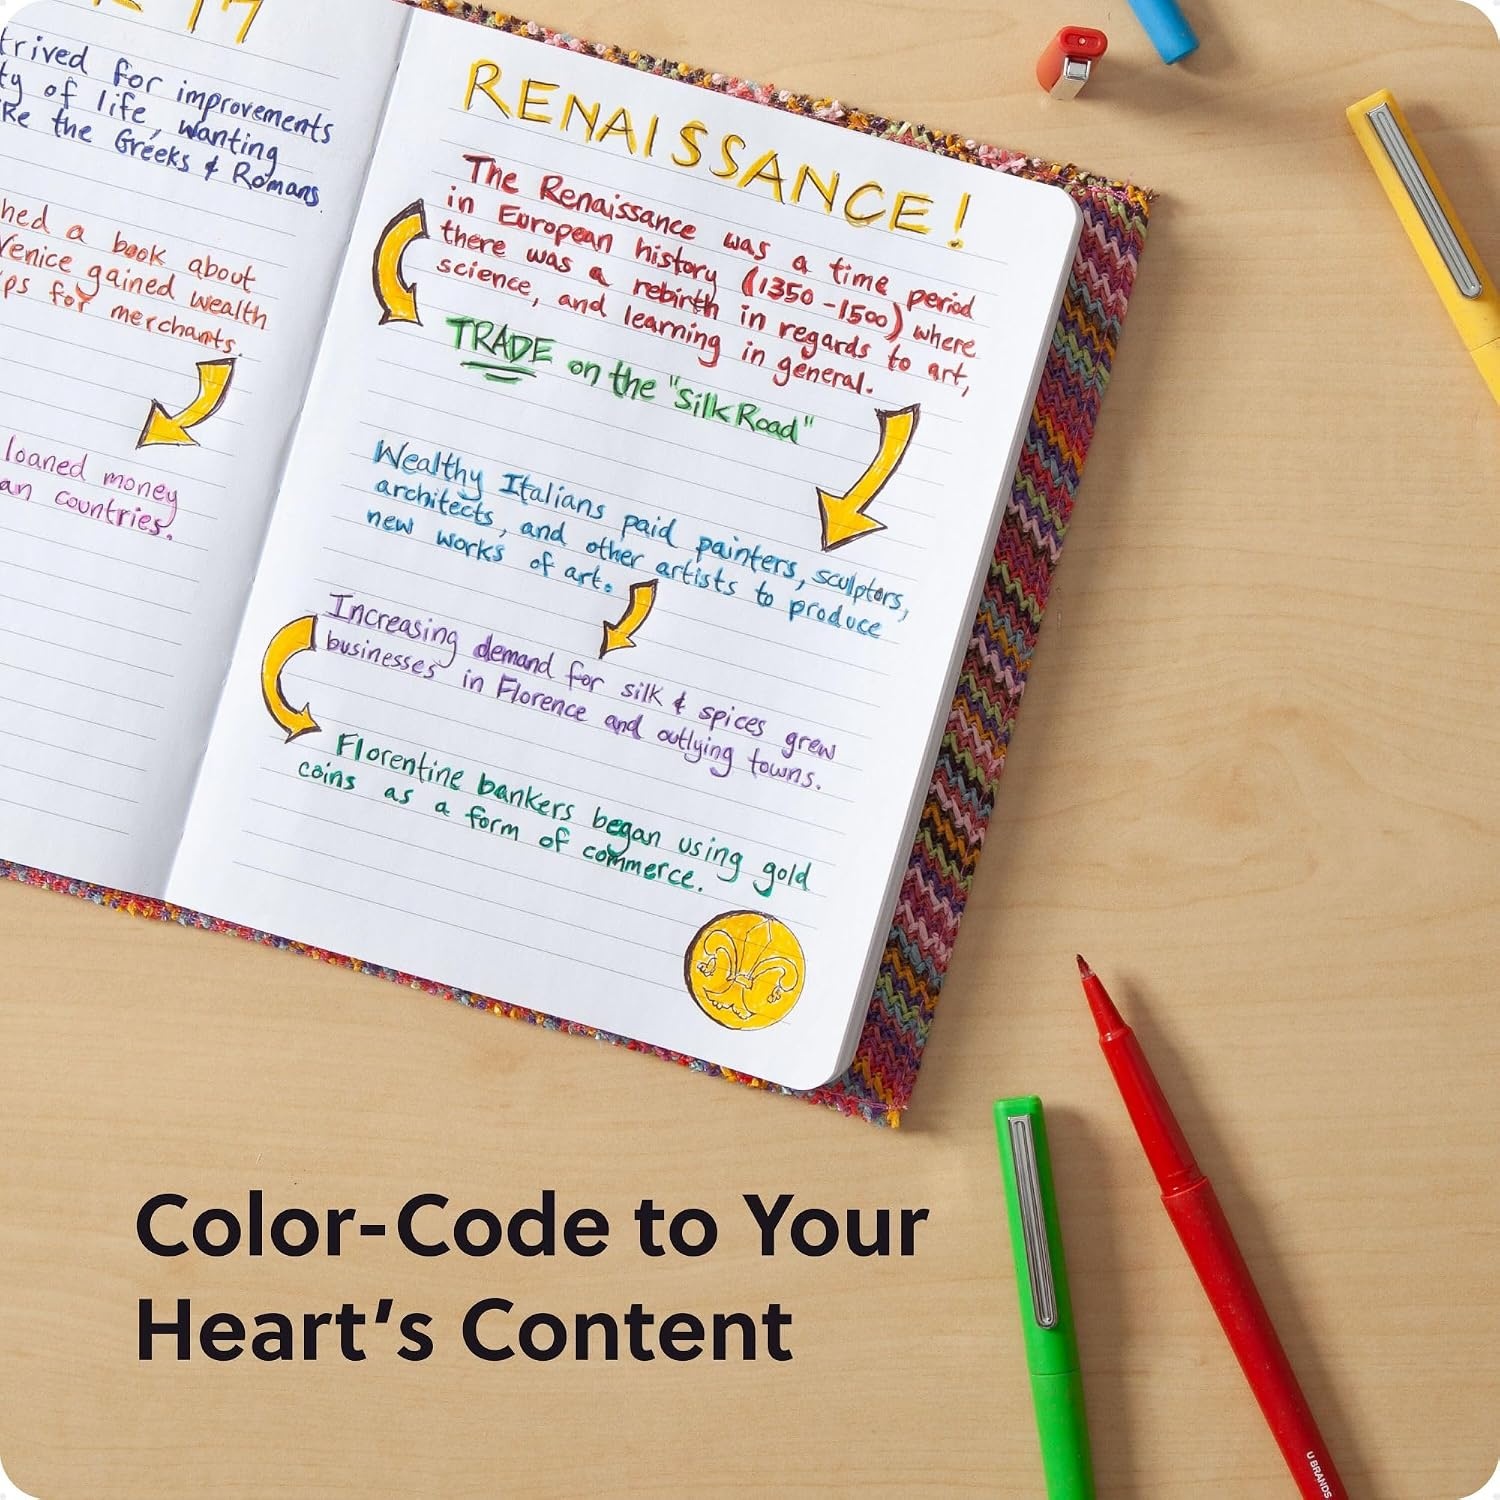 17
trived for improvements
ty of life, wanting
the Greeks & Romans
hed a book about
Venice gained wealth
ps for merchants.
loaned money
an countries.
RENAISSANCE!
The Renaissance was a time period
in European history (1350-1500) where
there was a rebirth in regards to art,
science, and learning in general.
TRADE on the "Silk Road"
Wealthy Italians paid painters, sculptors,
architects, and other artists to produce
new works of art.
Increasing demand for silk & spices grew
businesses in Florence and outlying towns.
Florentine bankers began using gold
coins as a form of commerce.
Color-Code to Your
Heart's Content
U BRANDS